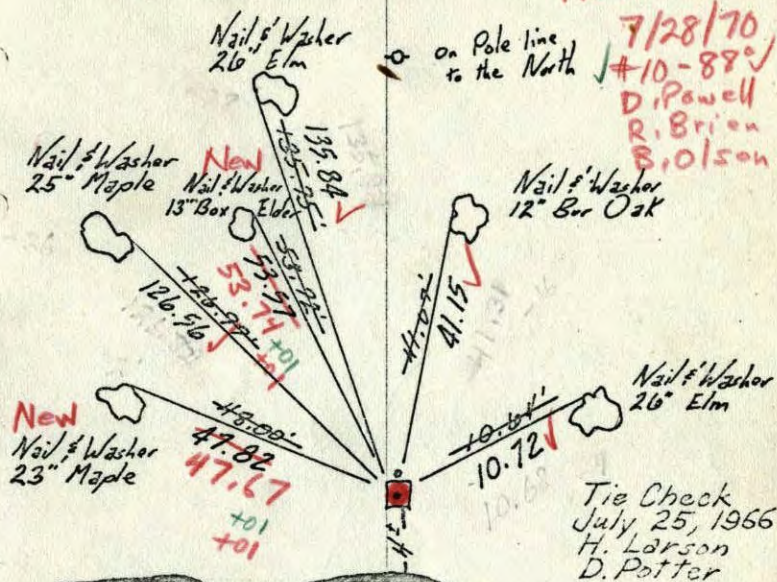 Nail & Washer
26" Elm
on Pole line
to the North
7/28/70
#10-88°
D. Powell
R. Brien
B. Olson
135.75'
135.84
Nail & Washer
25" Maple
New
Nail & Washer
13" Box Elder
Nail & Washer
12" Bur Oak
53.57
53.74
+01
+01
126.96
41.15
Nail & Washer
26" Elm
10.72
New
Nail & Washer
23" Maple
48.00'
47.82
47.67
+01
+01
Tie Check
July 25, 1966
H. Larson
D. Potter